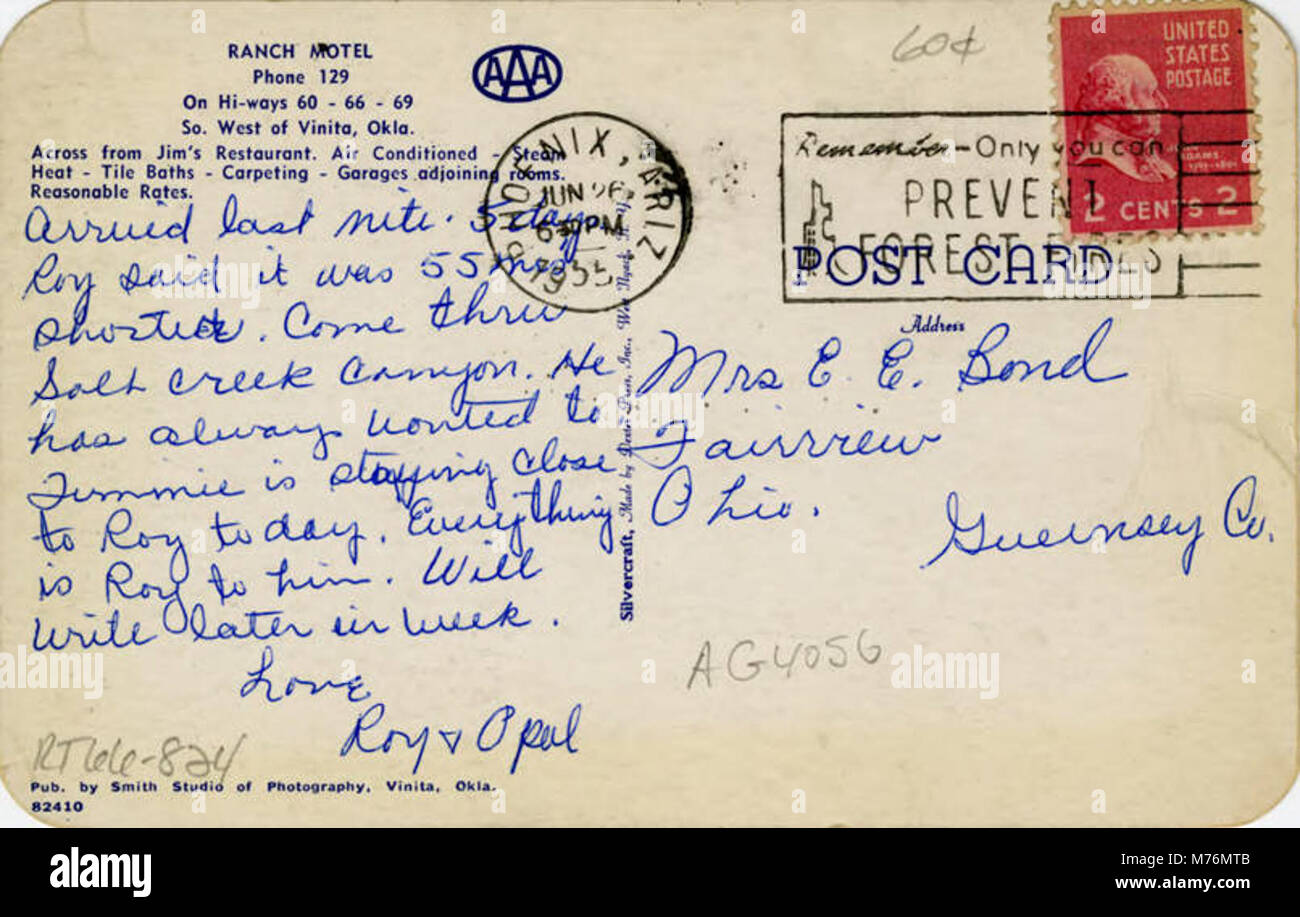 RANCH MOTEL
Phone 129
On Hi-ways 60 - 66 - 69
So. West of Vinita, Okla.
Across from Jim's Restaurant. Air Conditioned - Steam
Heat - Tile Baths - Carpeting - Garages adjoining rooms.
Reasonable Rates.
AAA
60¢
UNITED
STATES
POSTAGE
ADAMS
2 CENTS 2
PHOENIX, ARIZ.
JUN 26
630PM
1955
Remember - Only you can
PREVENT
FOREST FIRES
POST CARD
Address
Arruied last nite. 5 day
Roy said it was 55
shorter. Come thru
Salt Creek Canyon. He
has always wonted to
Jimmie is staying close
to Roy today. Everything
is Roy to him. Will
write later in week.
Love
Roy & Opal
Silvercraft, Made by Dexter Press, Inc., West Nyack, N. Y.
Mrs E. E. Bond
Fairview
Ohio.
Guernsey Co.
AG4056
RT66-824
Pub. by Smith Studio of Photography, Vinita, Okla.
82410
alamy
Image ID: M76MTB
www.alamy.com